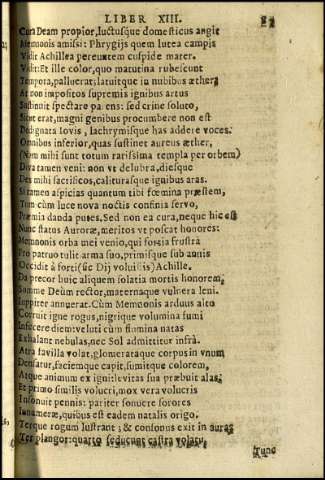 LIBER XIII.
Cura Deam propior, luctusque domesticus angit
Memnonis amissi: Phrygijs quem lutea campis
Vidit Achillea pereuntem cuspide mater.
Vidit: Et ille color, quo matutina rubescunt
Tempora, palluerat; latuitque in nubibus æther;
At non impositos supremis ignibus artus
Sustinuit spectare parens: sed crine soluto,
Sicut erat, magni genibus procumbere non est
Dedignata Iovis, lachrymisque has addere voces.
Omnibus inferior, quas sustinet aureus æther,
(Nam mihi sunt totum rarissima templa per orbem)
Diva tamen veni: non vt delubra, diesque
Des mihi sacrificos, calituras que ignibus aras.
Si tamen aspicias quantum tibi fœmina præstem,
Tum cùm luce nova noctis confinia servo,
Præmia danda putes. Sed non ea cura, neque hic est
Nunc status Auroræ, meritos vt poscat honores:
Memnonis orba mei venio, qui fortia frustrà
Pro patruo tulit arma suo, primisque sub annis
Occidit à forti (sic Dij voluistis) Achille.
Da precor huic aliquem solatia mortis honorem,
Summe Deùm rector, maternaque vulnera leni.
Iuppiter annuerat. Cùm Memnonis arduus alto
Corruit igne rogus, nigrique volumina fumi
Infecere diem: veluti cùm flumina natas
Exhalant nebulas, nec Sol admittitur infrà.
Atra favilla volat, glomerataque corpus in vnum
Densatur, faciemque capit, sumitque colorem,
Atque animum ex igni: levitas sua præbuit alas;
Et primò similis volucri, mox vera volucris
Insonuit pennis: pariter sonuere sorores
Innumeræ, quibus est eadem natalis origo.
Terque rogum lustrant; & consonus exit in auras
Ter plangor: quarto seducunt castra volatu,
Tunc